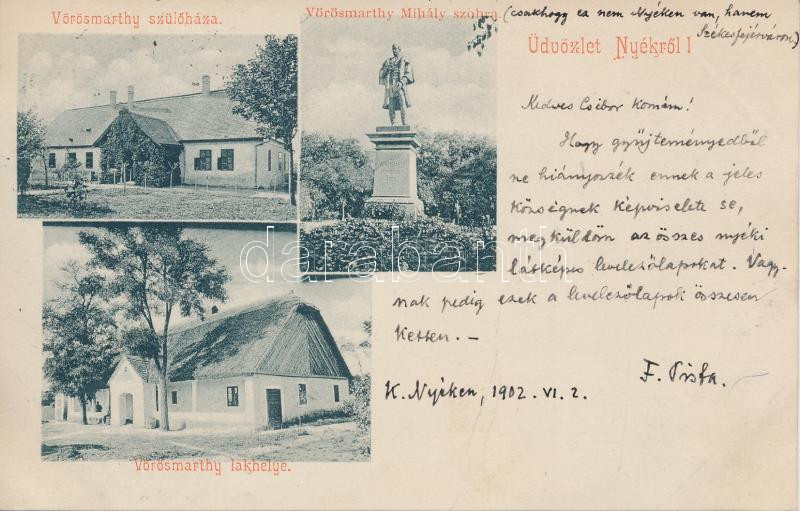 Vörösmarthy szülőháza.
Vörösmarthy Mihály szobra.
(csakhogy ez nem Nyéken van, hanem
Székesfejérváron.)
Üdvözlet Nyékről!
Kedves Czibor komám!
Hogy gyűjteményedből
ne hiányozzék ennek a jeles
községnek képviselete se,
megküldöm az összes nyéki
látképes levelezőlapokat. Vagy-
nak pedig ezek a levelezőlapok összesen
ketten. –
F. Pista.
K. Nyéken, 1902. VI. 2.
Vörösmarthy lakhelye.
darabanth